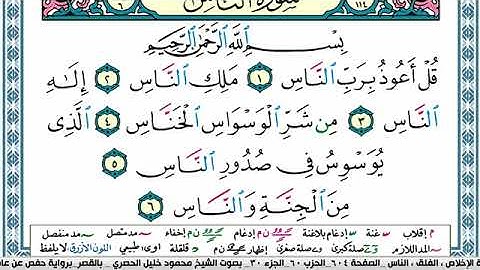 ٦ سورة الناس ١١٤
بِسْمِ اللَّهِ الرَّحْمَٰنِ الرَّحِيمِ
قُلْ أَعُوذُ بِرَبِّ النَّاسِ ١ مَلِكِ النَّاسِ ٢ إِلَٰهِ
النَّاسِ ٣ مِن شَرِّ الْوَسْوَاسِ الْخَنَّاسِ ٤ الَّذِي
يُوَسْوِسُ فِي صُدُورِ النَّاسِ ٥
مِنَ الْجِنَّةِ وَالنَّاسِ ٦
م إقلاب غنة إدغام بلاغنة ن م إدغام ن م إخفاء مد متصل مد منفصل
المد اللازم صلة كبرى وصلة صغرى إظهار ن م قلقلة ا و ى: طبيعي اللون الأزرق لا يلفظ
ة الإخلاص ، الفلق ، الناس _ الصفحة ٦٠٤_ الحزب ٦٠_ الجزء ٣٠_ بصوت الشيخ محمود خليل الحصري _ بالقصر_ برواية حفص عن عا